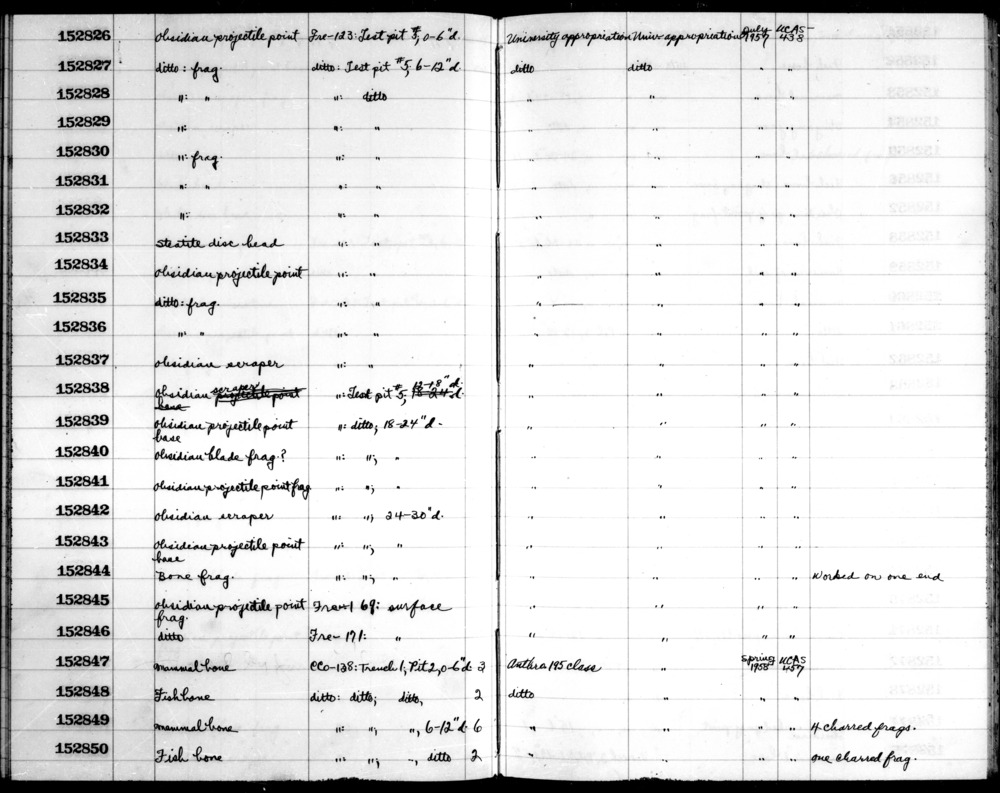 152826 obsidian projectile point Fre-123: Test pit #5, 0-6"d. University appropriation Univ. appropriation July 1957 UCAS-438
152827 ditto: frag. ditto: Test pit #5, 6-12"d. ditto ditto " "
152828 ": " ": ditto " " " "
152829 ": ": " " " " "
152830 ": frag. ": " " " " "
152831 ": " ": " " " " "
152832 ": ": " " " " "
152833 steatite disc bead ": " " " " "
152834 obsidian projectile point ": " " " " "
152835 ditto: frag. ": " " " " "
152836 ": " ": " " " " "
152837 obsidian scraper ": " " " " "
152838 obsidian scraper projectile point ": Test pit #5, 12-18"d. 18-24"d. " " " "
base
152839 obsidian projectile point ": ditto; 18-24"d. " " " "
base
152840 obsidian blade frag.? ": "; " " " " "
152841 obsidian projectile point frag ": "; " " " " "
152842 obsidian scraper ": "; 24-30"d. " " " "
152843 obsidian projectile point ": "; " " " " "
base
152844 Bone frag. ": "; " " " " " worked on one end
152845 obsidian projectile point Fre-169: surface " " " "
frag.
152846 ditto Fre-171: " " " " "
152847 mammal bone CCo-138: Trench 1; Pit 2, 0-6"d. 3 Anthro 195 class " Spring 1958 UCAS 457
152848 Fish bone ditto: ditto; ditto, 2 ditto " " "
152849 mammal bone ": "; ", 6-12"d. 6 " " " " 4 charred frags.
152850 Fish bone ": "; ", ditto 2 " " " " one charred frag.